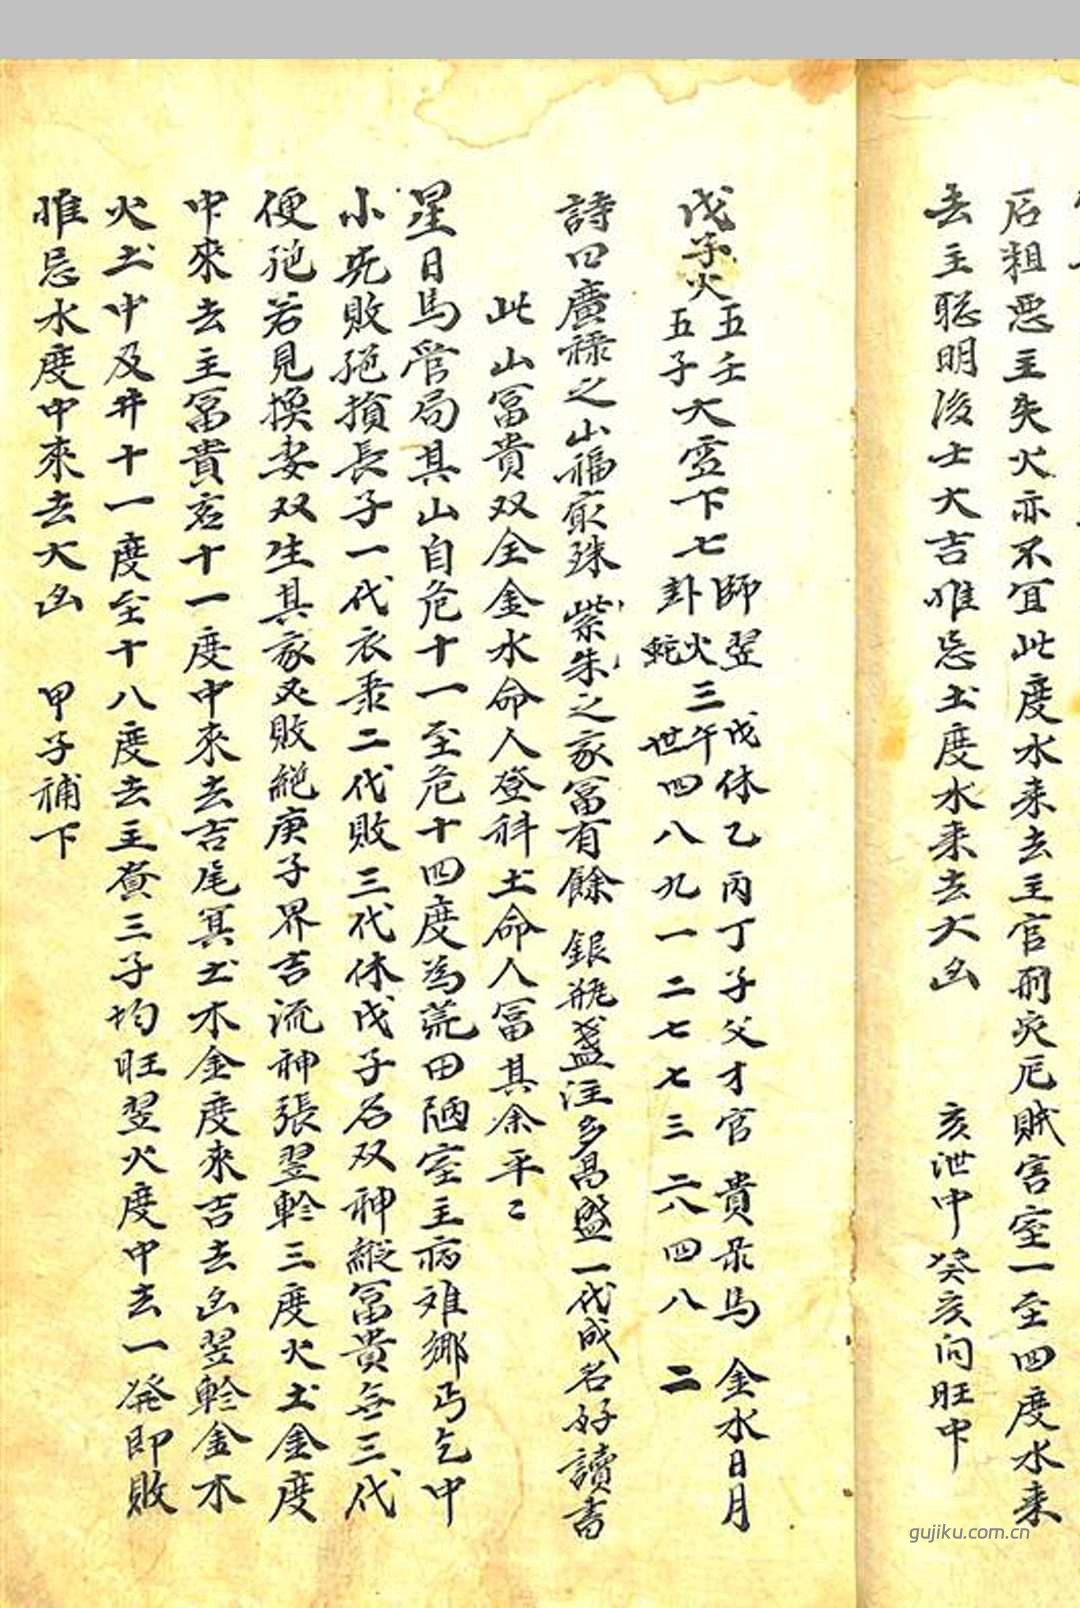 后粗惡主失火亦不宜此度水来去主官刑灾厄贼害室一至四度水来
去主聡明浚士大吉惟忌土度水来去大凶 亥泄中癸亥向旺中
戊子火 五壬 五子 大 下七 師 卦 翌火蛇 三 戊午世
休乙丙丁子父才官 貴彔馬 金水日月
四八九一二七七三 二八四八 二
詩曰廣禄之山福最殊 紫朱之家冨有餘 銀瓶盞注多昌盛一代成名好讀書
此山冨貴双全金水命人登科土命人冨其余平〻
星日馬管局其山自危十一至危十四度為荒田陋室主病难鄉丐乞中
小旡敗絕損長子一代衣秉二代敗三代休戊子名双神縱冨貴無三代
便絕若見換妻双生其家又敗絕庚子界吉流神張翌軫三度火土金度
中來去主冨貴危十一度中來去吉尾箕土木金度來吉去凶翌軫金木
火土中及井十一度至十八度去主資三子均旺翌火度中去一発即敗
惟忌水度中來去大凶 甲子補下
gujiku.com.cn